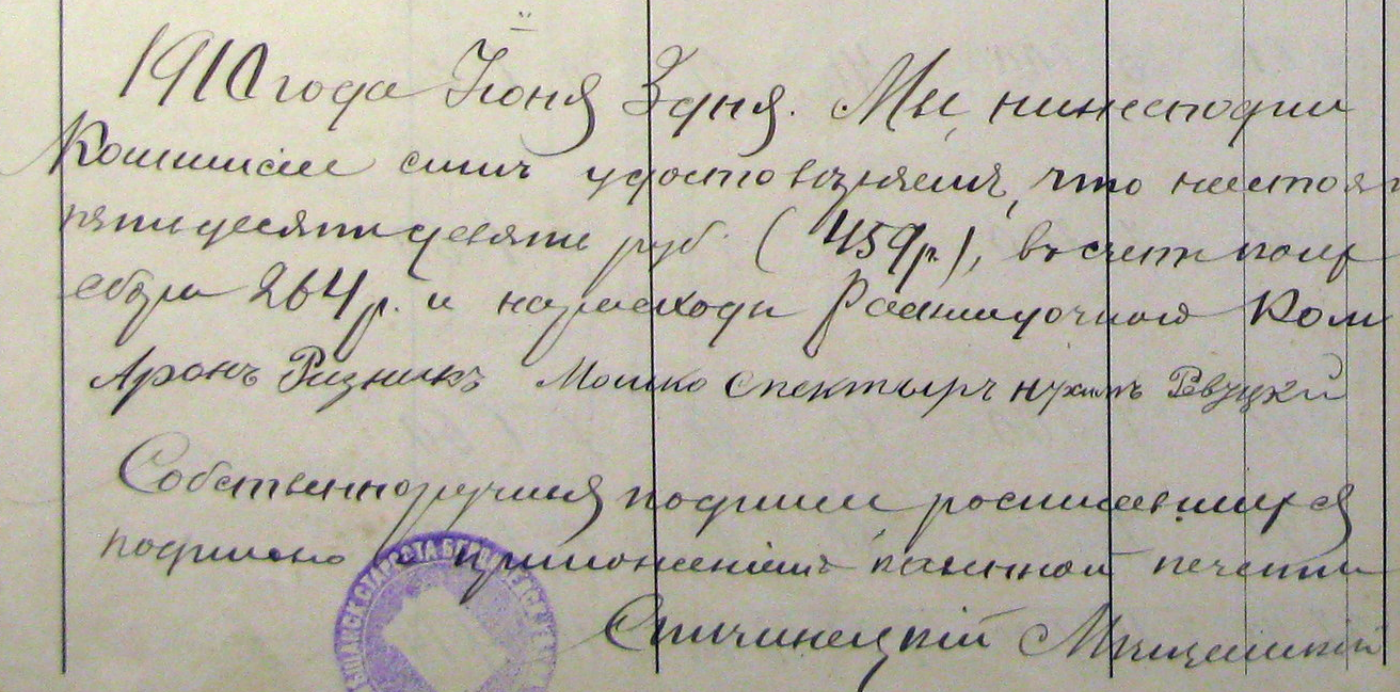 1910 года Іюня 3 дня. Мы, нижеподпи
Коммисіи симъ удостовѣряемъ, что настоя
пятидесяти девяти руб. (459 р.), въ счетъ
сбора 264 р. и на расходы Раскладочной Ком
Аронъ Ризникъ Мошко Спектыръ Нухимъ Ревуцкій
Собственноручныя подписи росписавшихся
подписью и приложеніемъ казенной печати
Спичинецкій